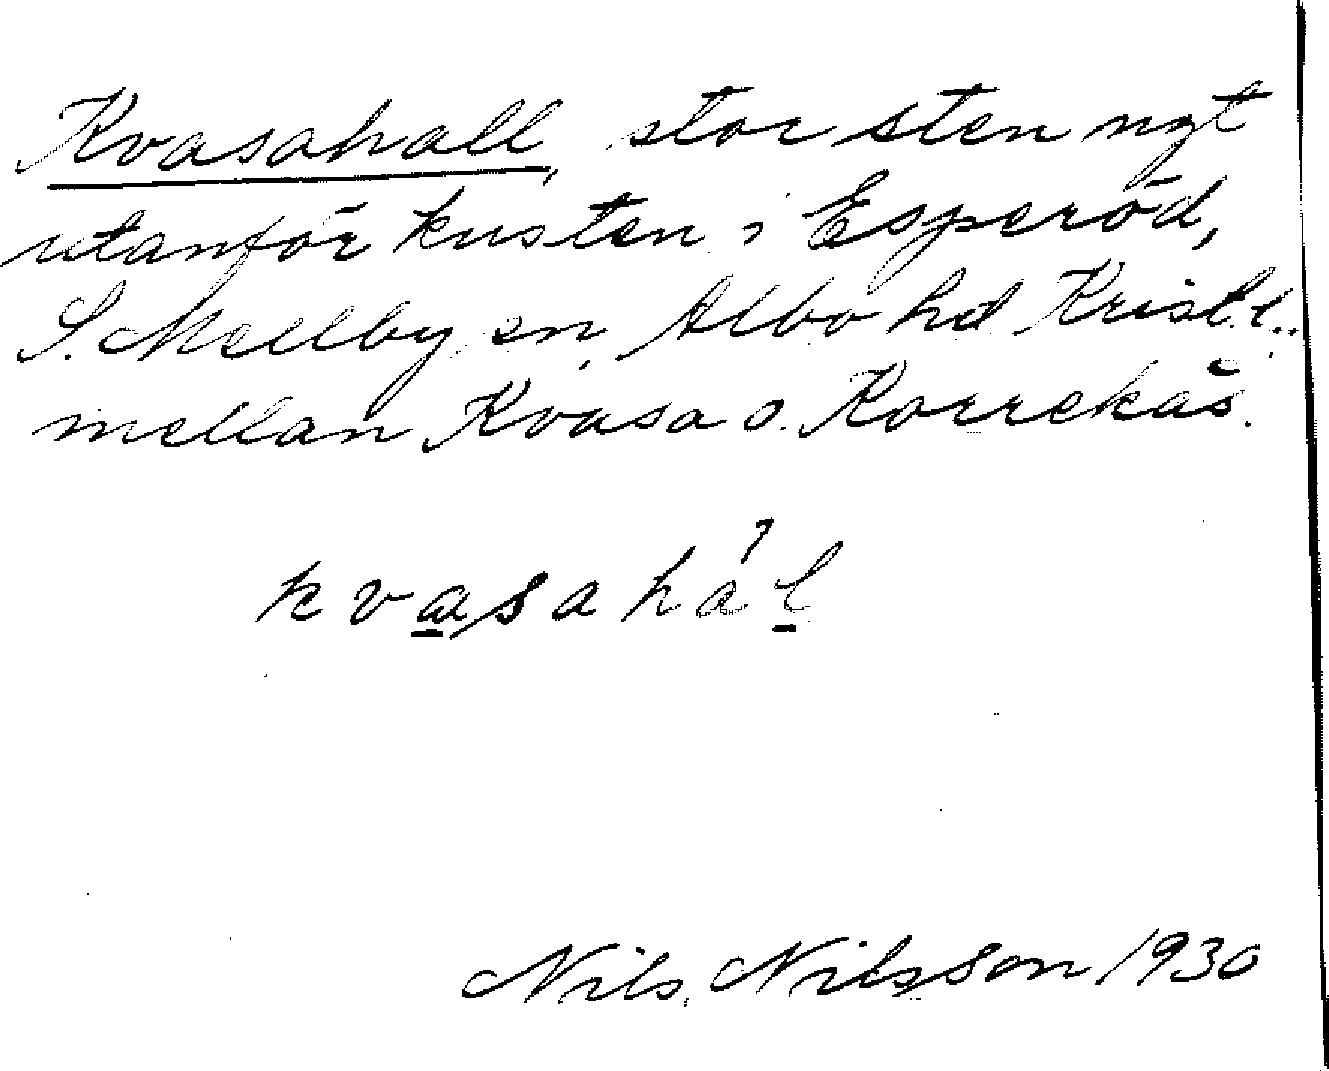 Kvasahall, stor sten ngt
utanför kusten i Esperöd,
S. Mellby sn, Albo hd Krist. l.,
mellan Kvasa o. Korrekås.
kvasahál
Nils Nilsson 1930